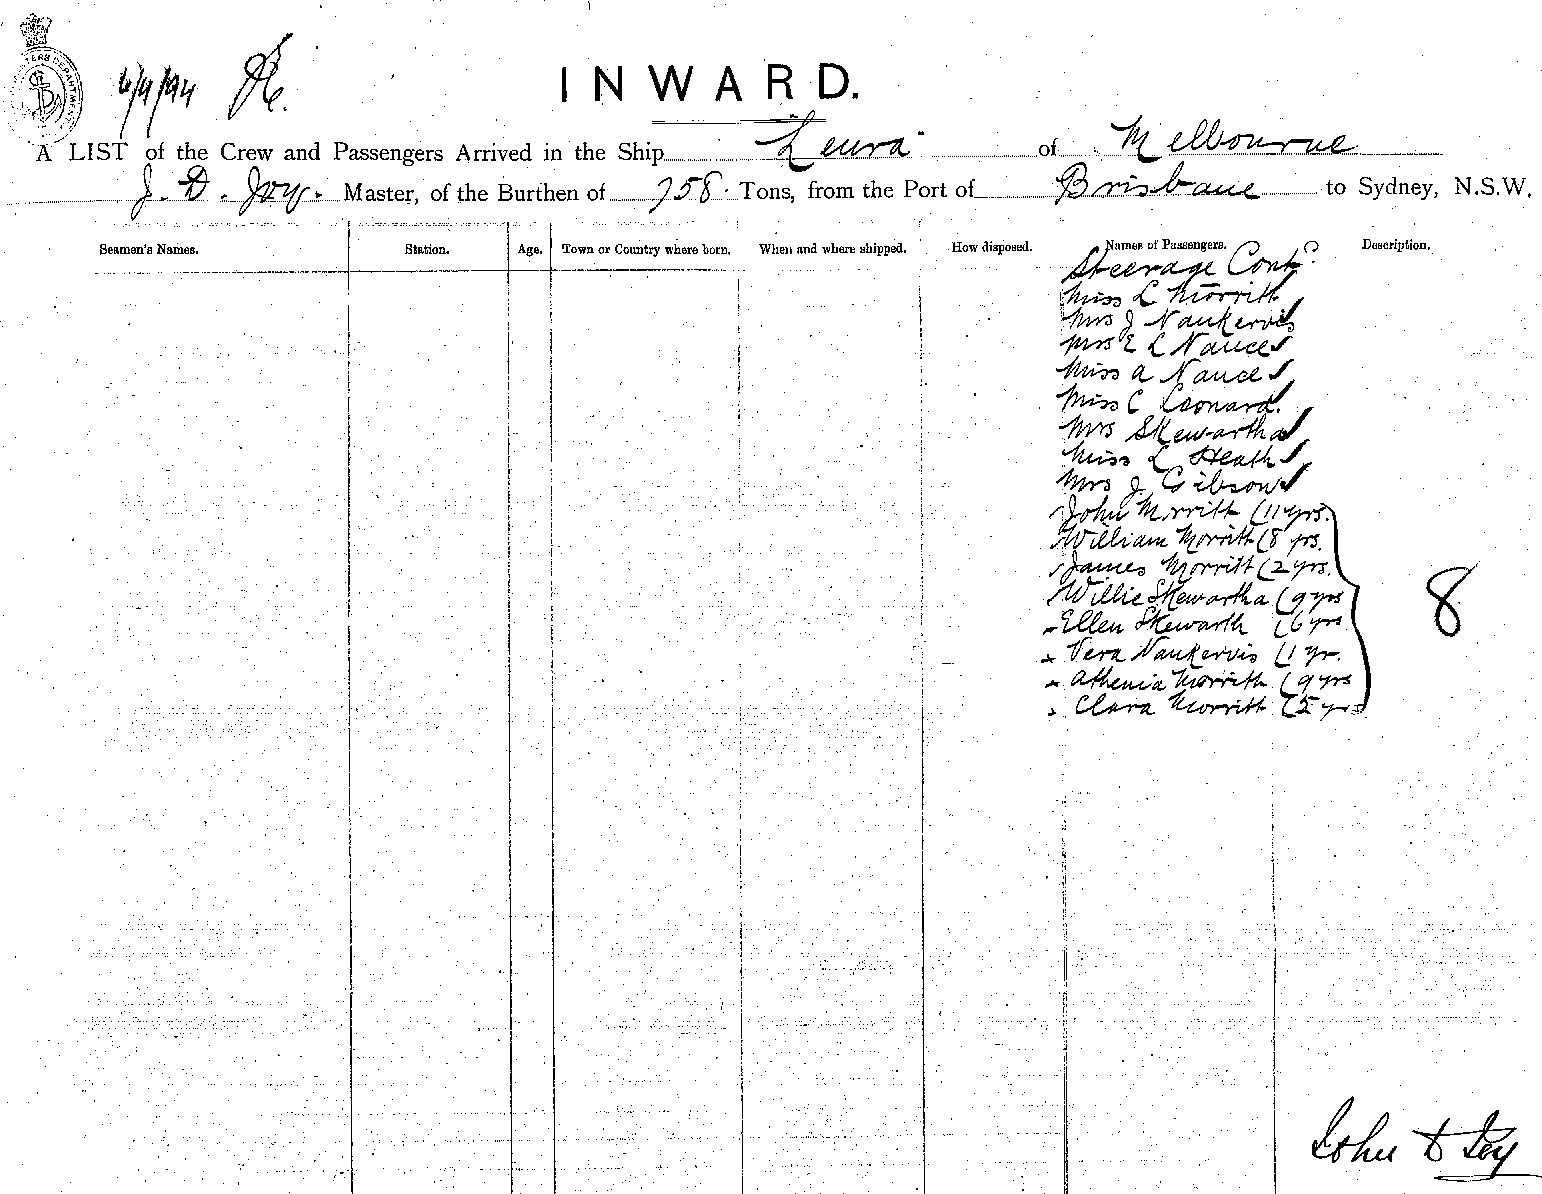 6/4/94
INWARD.
A LIST of the Crew and Passengers Arrived in the Ship Leura of Melbourne
J. D. Joy. Master, of the Burthen of 758 Tons, from the Port of Brisbane to Sydney, N.S.W.
Seamen's Names. Station. Age. Town or Country where born. When and where shipped. How disposed. Names of Passengers. Description.
Steerage Contd
Miss L Morritt
Mrs J Nankervis
Mrs E L Nance
Miss A Nance
Miss C Leonard.
Mrs Skewartha
Miss L Heath
Mrs J Gibson
John Morritt (11 yrs.
William Morritt (8 yrs.
James Morritt (2 yrs.
Willie Skewartha (9 yrs
Ellen Skewarth (6 yrs
Vera Nankervis (1 yr.
Athenia Morritt (9 yrs
Clara Morritt (5 yrs
8
John D Joy